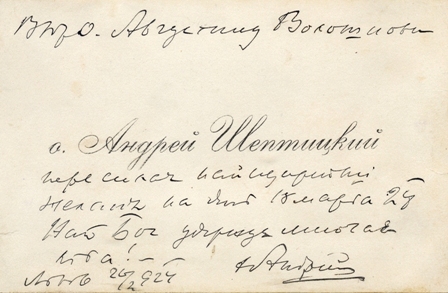 Впр. о. Августину Волошинови
о. Андрей Шептицкий
пересилає найщирійші
желаня на день 18 марта 24
Най Бог удержує многая
лѣта! –
Львів 26/2 924
† Андрій